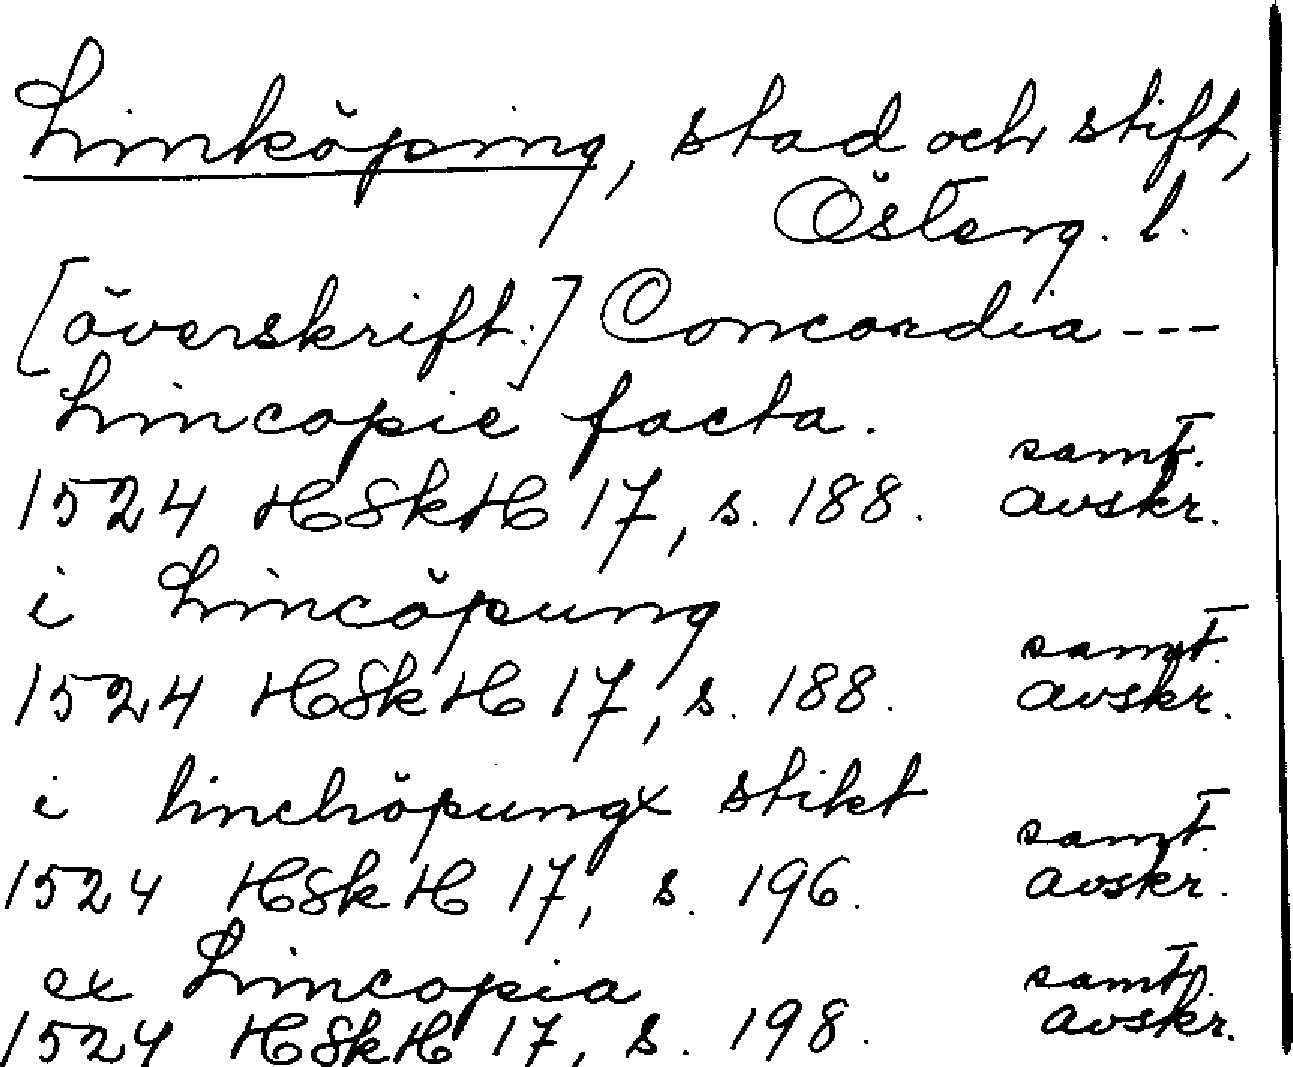 Linköping, stad och stift,
Österg. l.
[överskrift:] Concordia ---
Lincopie facta.
samt.
1524 HSkH 17, s. 188. avskr.
i Lincöpung
samt.
1524 HSkH 17, s. 188. avskr.
i linchöpungx stikt
samt.
1524 HSkH 17, s. 196. avskr.
ex Lincopia samt.
1524 HSkH 17, s. 198. avskr.